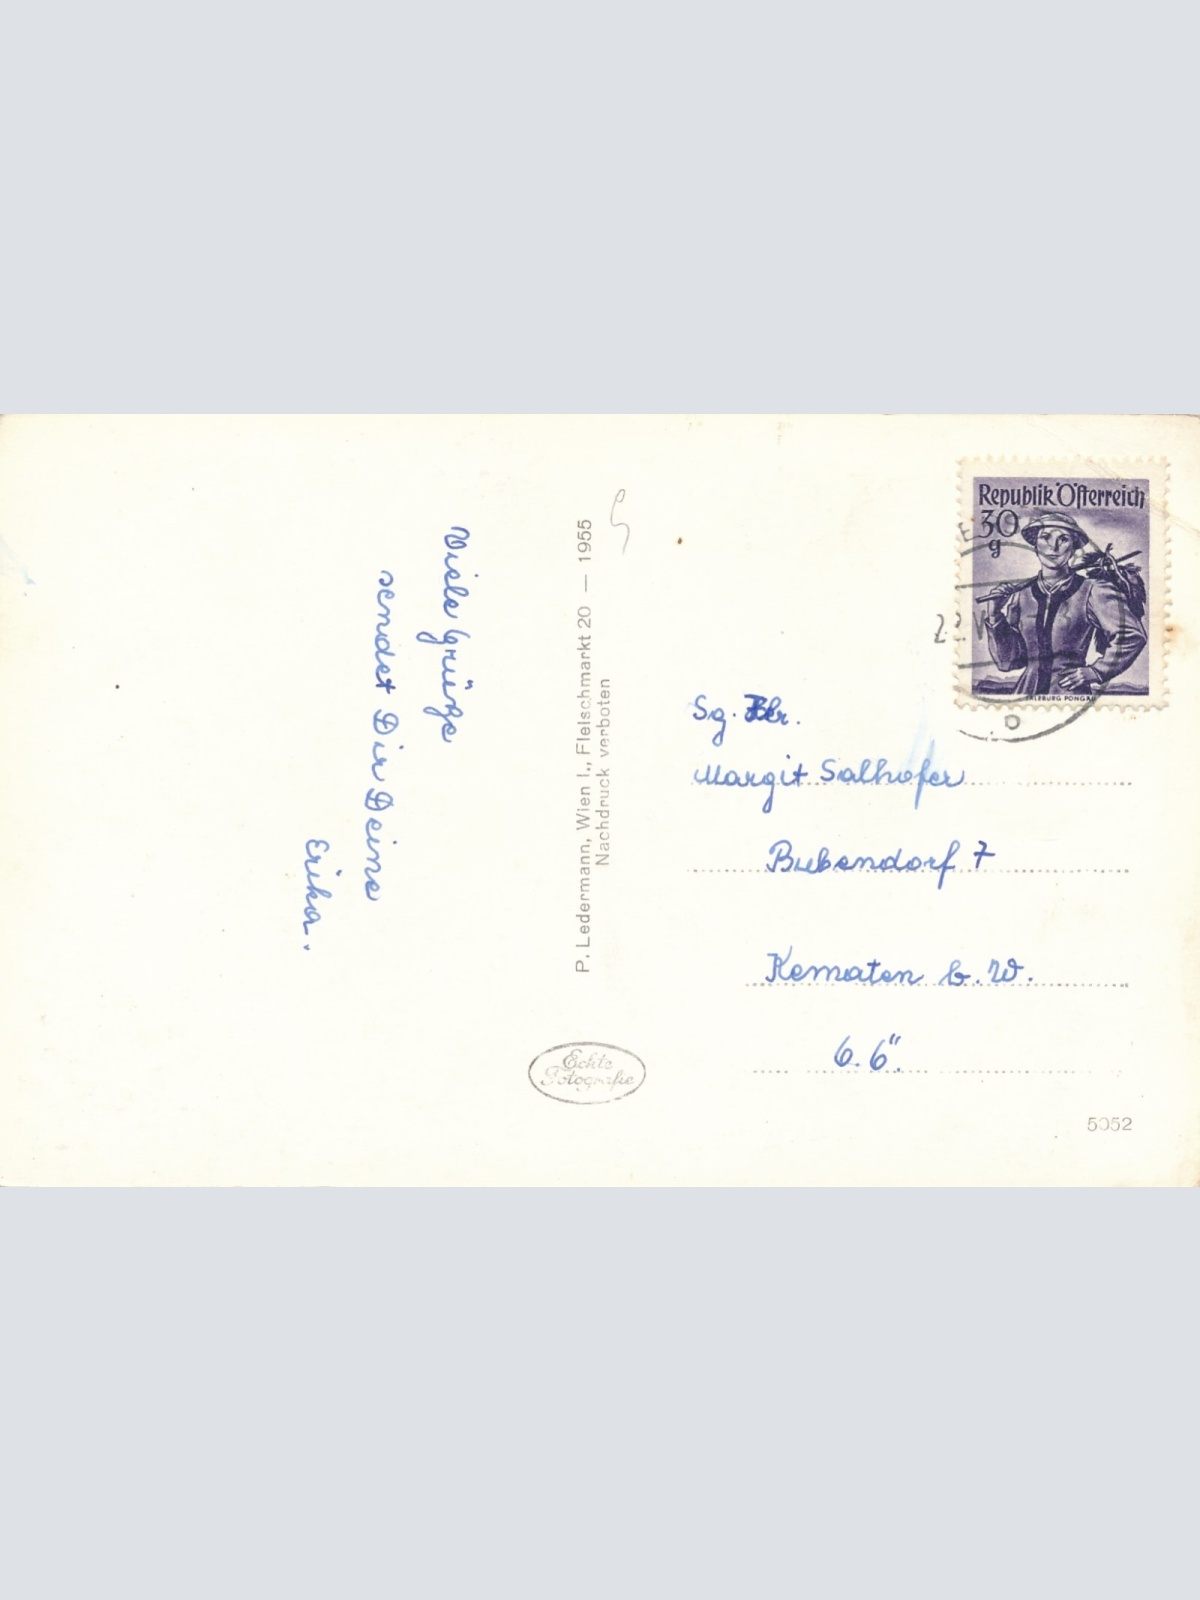 Viele Grüße
sendet Dir Deine
Erika.
P. Ledermann, Wien I., Fleischmarkt 20 — 1955
Nachdruck verboten
Echte
Fotografie
Republik Österreich
30
g
SALZBURG PONGAU
Sg.
Margit Salhofer
Bubendorf 7
Kematen b. W.
O. Ö.
5052